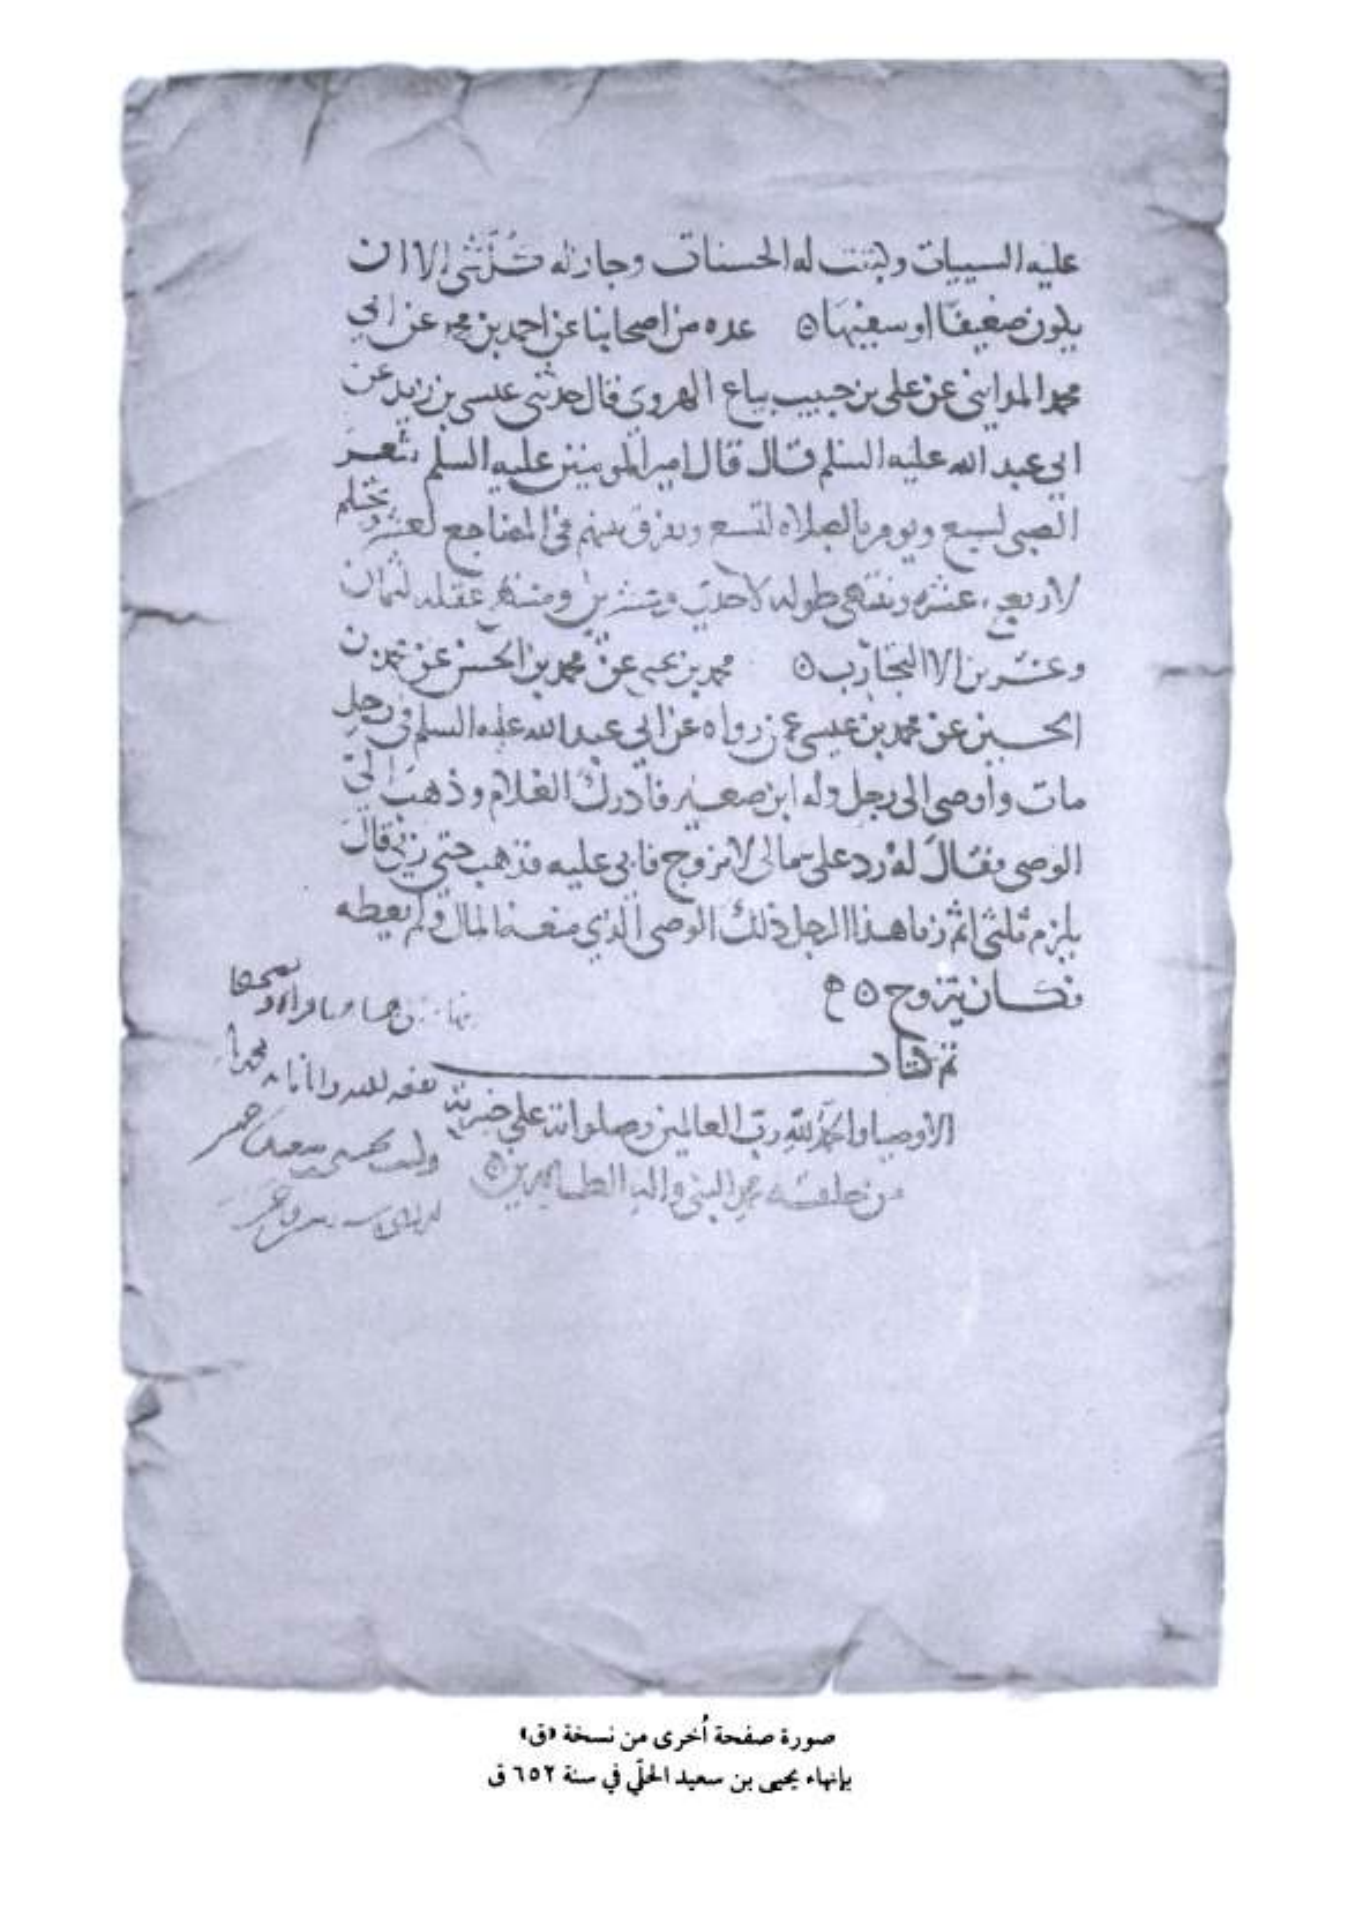 عليه السييات وكتبت له الحسنات وجاز له كل شي الا ان
يكون ضعيفا او سفيها ه عده من اصحابنا عن احمد بن محمد عن ابي
محمد المدايني عن علي بن حبيب بياع الهروي قال حدثني عيسى بن زيد عن
ابي عبد الله عليه السلم قال قال امير المومنين عليه السلم يثغر
الصبي لسبع ويومر بالصلاه لتسع ويفرق بينهم في المضاجع لعشر ويحتلم
لاربع عشره وينتهي طوله لاحدى وعشرين ومنتهى عقله لثمان
وعشرين الا التجارب ه محمد بن يحيى عن محمد بن الحسن عن محمد بن
الحسين عن محمد بن عيسى عمن رواه عن ابي عبد الله عليه السلم في رجل
مات واوصى الى رجل وله ابن صغير فادرك الغلام وذهب الى
الوصي فقال له رد علي مالي لاتزوج فابى عليه فذهب حتى زنى قال
يلزم ثلثي اثم زنا هذا الرجل ذلك الوصي الذي منعه المال ولم يعطه
فكان يتزوج ه
تم كتاب
الاوصيا والحمد لله رب العالمين وصلواته على خيرته
من خلقه محمد النبي واله الطاهرين ه
وكتب يحيى بن سعيد
صورة صفحة أُخرى من نسخة «ق»
بإنهاء يحيى بن سعيد الحلّي في سنة ٦٥٢ ق